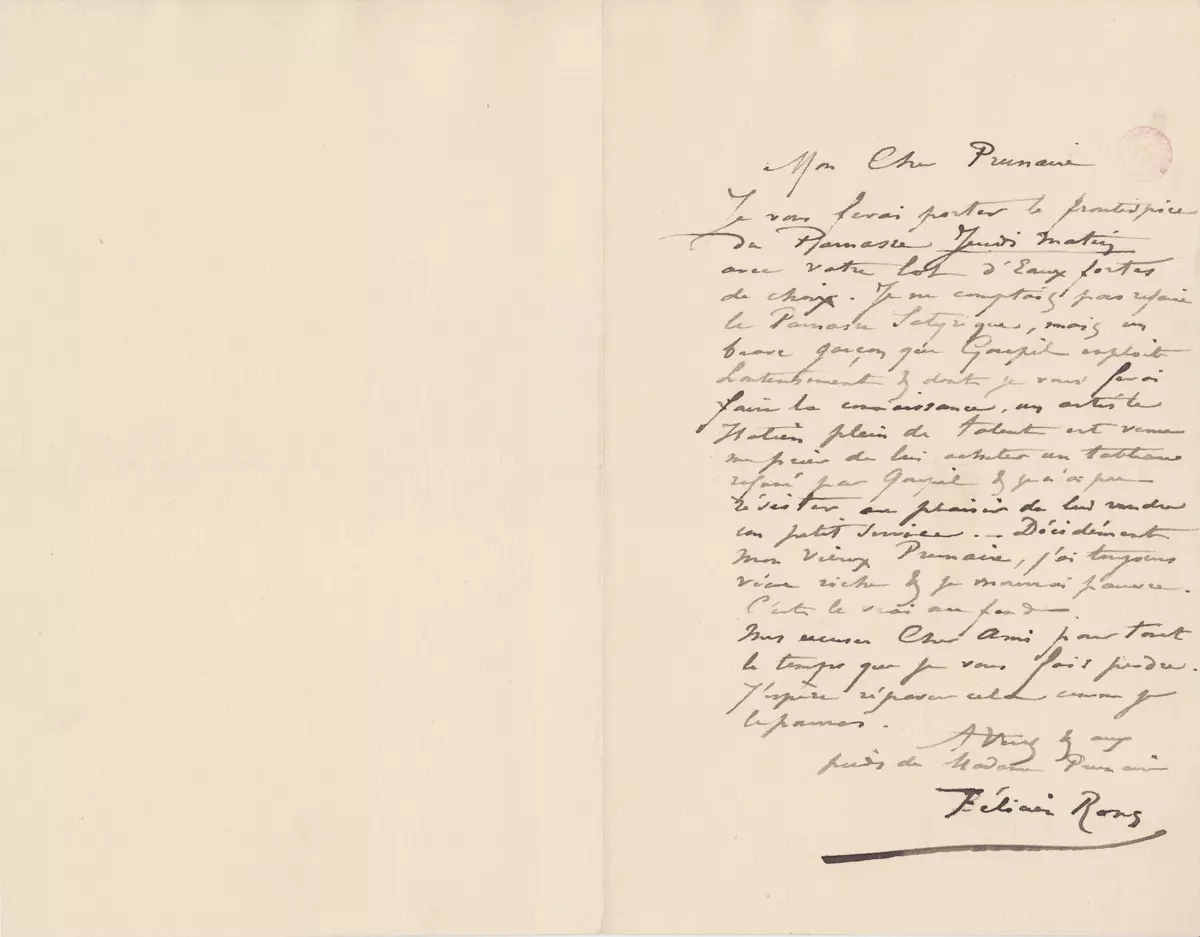 Mon Cher Prunaire
Je vous ferai porter le frontispice
du Parnasse Jeudi matin
avec votre lot d'Eaux fortes
de choix. Je ne comptais pas refaire
le Parnasse Satyrique, mais un
brave garçon que Goupil exploite
honteusement & dont je vous ferai
faire la connaissance, un artiste
Italien plein de talent est venu
me prier de lui acheter un tableau
refusé par Goupil & je n'ai pu
résister au plaisir de lui rendre
un petit service. – Décidément
mon vieux Prunaire, j'ai toujours
vécu riche & je mourrai pauvre.
C'est le vrai au fond
Mes excuses Cher Ami pour tout
le temps que je vous fais perdre.
J'espère réparer cela comme je
le pourrai.
A vous & aux
pieds de Madame Prunaire
Félicien Rops